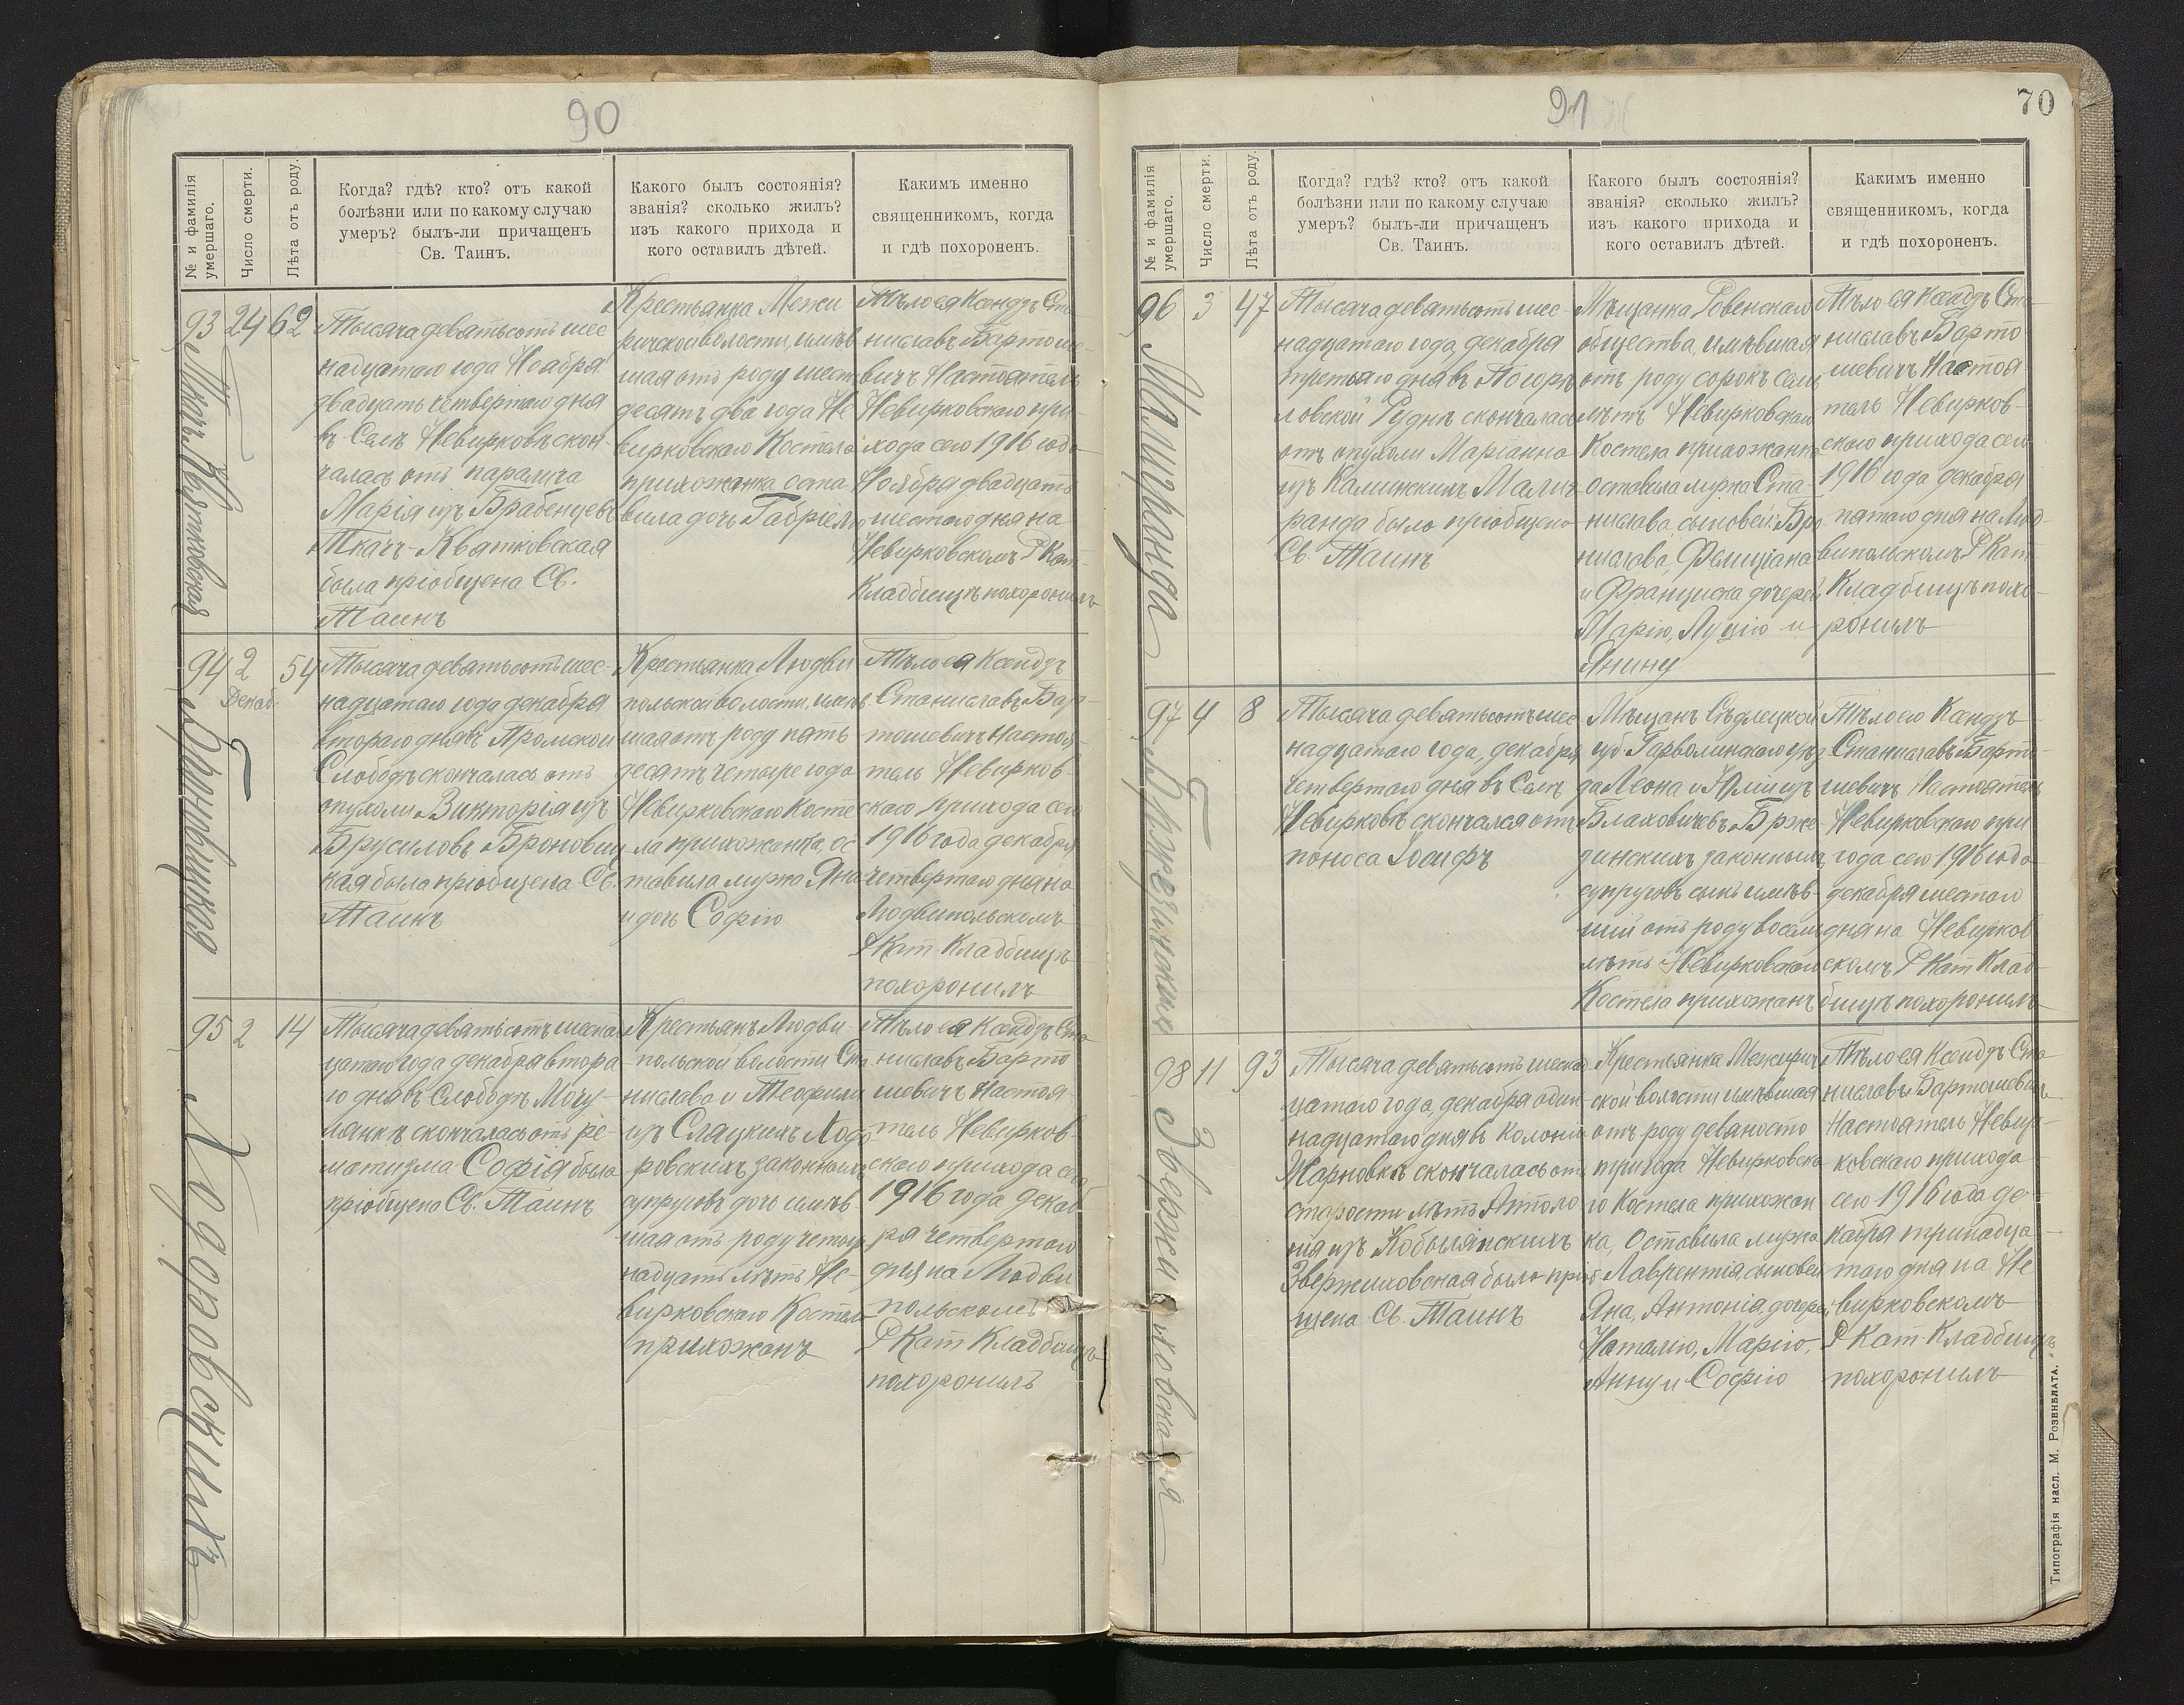 90
№ и фамилія умершаго.
Число смерти.
Лѣта отъ роду.
Когда? гдѣ? кто? отъ какой
болѣзни или по какому случаю
умеръ? былъ-ли причащенъ
Св. Таинъ.
Какого былъ состоянія?
званія? сколько жилъ?
изъ какого прихода и
кого оставилъ дѣтей.
Какимъ именно
священникомъ, когда
и гдѣ похороненъ.
93
24
62
Ткачъ-Квятковская
Тысяча девятьсотъ шес
надцатаго года Ноября
двадцать четвертаго дня
въ Селѣ Невирковѣ скон-
чалась отъ паралича
Марія изъ Брабенцевъ
Ткачъ-Квятковская
была пріобщена Св.
Таинъ
Крестьянка Межи
ричской волости, имѣв
шая отъ роду шесть
десятъ два года Не
вирковскаго Костела
прихожанка оста
вила дочь Габріелю
Тѣло ея Ксендзъ Ста
ниславъ Бартоше
вичъ Настоятель
Невирковскаго при
хода сего 1916 года
Ноября двадцать
шестого дня на
Невирковскомъ Р Кат
Кладбищѣ похоронилъ
94
2
Декаб.
54
Броновицкая
Тысяча девятьсотъ шес-
надцатаго года декабря
втораго дня въ Промской
Слободѣ скончалась отъ
опухоли Викторія изъ
Брусиловъ Броновиц
кая была пріобщена Св.
Таинъ
Крестьянка Людви
польской волости, имѣв
шая отъ роду пять
десятъ четыре года
Невирковскаго Косте
ла прихожанка, ос
тавила мужа Яна
и дочь Софію
Тѣло ея Ксендзъ
Станиславъ Бар-
тошевичъ Настоя-
тель Невирков-
скаго прихода сего
1916 года декабря
четвертаго дня на
Людвипольскомъ
Р Кат Кладбищѣ
похоронилъ
95
2
14
Ходоровскихъ
Тысяча девятьсотъ шеснад
цатаго года декабря втора
го дня въ Слободѣ Мочу-
лянкѣ скончалась отъ ре-
матизма Софія была
пріобщена Св. Таинъ
Крестьянъ Людви-
польской волости Ста
нислава и Теофили
изъ Слацкихъ Ходо
ровскихъ законныхъ
супруговъ дочь имѣв-
шая отъ роду четыр
надцать лѣтъ Не-
вирковскаго Костела
прихожанъ
Тѣло ея Ксендзъ Ста
ниславъ Барто
шевичъ Настоя-
тель Невирков-
скаго прихода сего
1916 года декаб
ря четвертаго
дня на Людви
польскомъ
Р Кат Кладбищѣ
похоронилъ
91
70
№ и фамилія умершаго.
Число смерти.
Лѣта отъ роду.
Когда? гдѣ? кто? отъ какой
болѣзни или по какому случаю
умеръ? былъ-ли причащенъ
Св. Таинъ.
Какого былъ состоянія?
званія? сколько жилъ?
изъ какого прихода и
кого оставилъ дѣтей.
Какимъ именно
священникомъ, когда
и гдѣ похороненъ.
96
3
47
Малиранда
Тысяча девятьсотъ шес-
надцатаго года, декабря
третьяго дня въ Погорѣ
ловской Руднѣ скончалась
отъ опухоли Маріанна
изъ Калинскихъ Мали-
ранда была пріобщена
Св. Таинъ
Мѣщанка Ровенскаго
общества, имѣвшая
отъ роду сорокъ семь
лѣтъ Невирковскаго
Костела прихожанка
оставила мужа Ста-
нислава, сыновей: Бро
нислава, Фелиціана
и Франциска дочерей
Марію, Луцію и
Янину
Тѣло ея Ксендзъ Ста-
ниславъ Барто
шевичъ Настоя-
тель Невирков-
скаго прихода сего
1916 года декабря
пятаго дня на Люд-
випольскомъ Р Кат
Кладбищѣ похо-
ронилъ
97
4
8
Бржезинскій
Тысяча девятьсотъ шес
надцатаго года, декабря
четвертаго дня въ Селѣ
Невирковѣ скончался отъ
поноса Іосифъ
Мѣщанъ Сѣдлецкой
губ. Гарволинскаго уѣз
да Леона и Юліи изъ
Блаховичевъ Брже-
зинскихъ законныхъ
супруговъ сынъ имѣв-
шій отъ роду восемь
лѣтъ Невирковскаго
Костела прихожанъ
Тѣло его Ксендзъ
Станиславъ Барто-
шевичъ Настоятель
Невирковскаго при
года сего 1916 года
декабря шестаго
дня на Невирков
скомъ Р Кат Клад-
бищѣ похоронилъ
98
11
93
Звержиховская
Тысяча девятьсотъ шеснад
цатаго года, декабря один
надцатаго дня въ колоніи
Жарновкѣ скончалась отъ
старости лѣтъ Аполо
нія изъ Кобылянскихъ
Звержиховская была пріоб
щена Св. Таинъ
Крестьянка Межирич
ской волости имѣвшая
отъ роду девяносто
три года Невирковска
го Костела прихожан
ка, Оставила мужа
Лаврентія, сыновей
Яна, Антонія, дочерей
Наталію, Марію,
Анну и Софію
Тѣло ея Ксендзъ Ста
ниславъ Бартошевичъ
Настоятель Невир-
ковскаго прихода
сего 1916 года де-
кабря тринадца-
таго дня на Не
вирковскомъ
Р Кат Кладбищѣ
похоронилъ
Типографія насл. М. Розенблата.